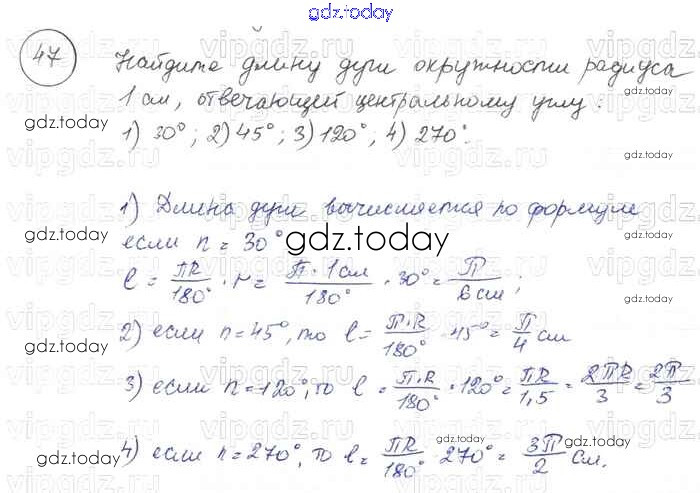 gdz.today
47 Найдите длину дуги окружности радиуса
1 см, отвечающей центральному углу:
gdz.today
1) 30°; 2) 45°; 3) 120°, 4) 270°.
gdz.today
1) Длина дуги вычисляется по формуле
если n = 30°
gdz.today
gdz.today
l = ПR/180° · n = П · 1 см/180° · 30° = П/6 см;
gdz.today
2) если n = 45°, то l = П·R/180° · 45° = П/4 см
3) если n = 120°, то l = П·R/180° · 120° = ПR/1,5 = 2ПR/3 = 2П/3
gdz.today
gdz.today
4) если n = 270°, то l = ПR/180° 270° = 3П/2 см.
gdz.today
gdz.today